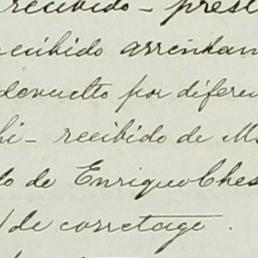 recibido - prest
recibido arrendam
devuelto por diferen
hi - recibido de M
lo de Enrique Ches
de corretage.